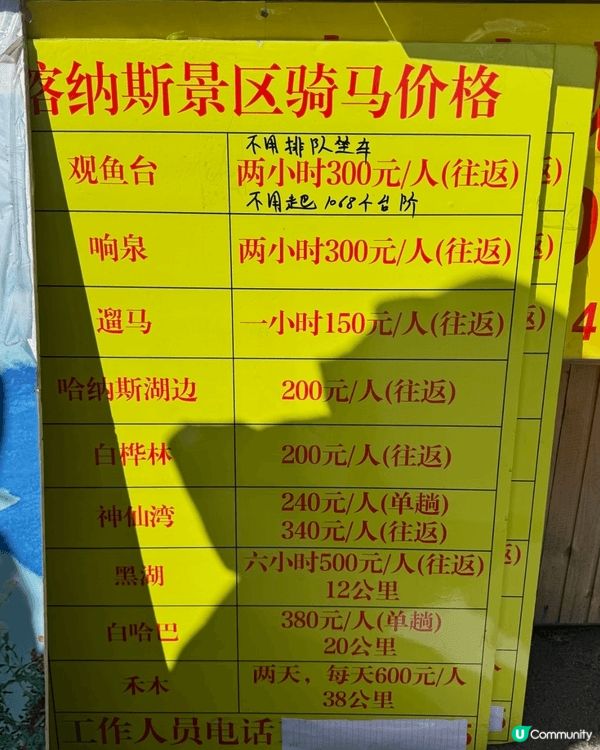 喀纳斯景区骑马价格
不用排队坐车
观鱼台 两小时300元/人(往返)
不用走爬1068个台阶
响泉 两小时300元/人(往返)
遛马 一小时150元/人(往返)
哈纳斯湖边 200元/人(往返)
白桦林 200元/人(往返)
神仙湾 240元/人(单趟)
340元/人(往返)
黑湖 六小时500元/人(往返)
12公里
白哈巴 380元/人(单趟)
20公里
禾木 两天，每天600元/人
38公里
工作人员电话
U Community